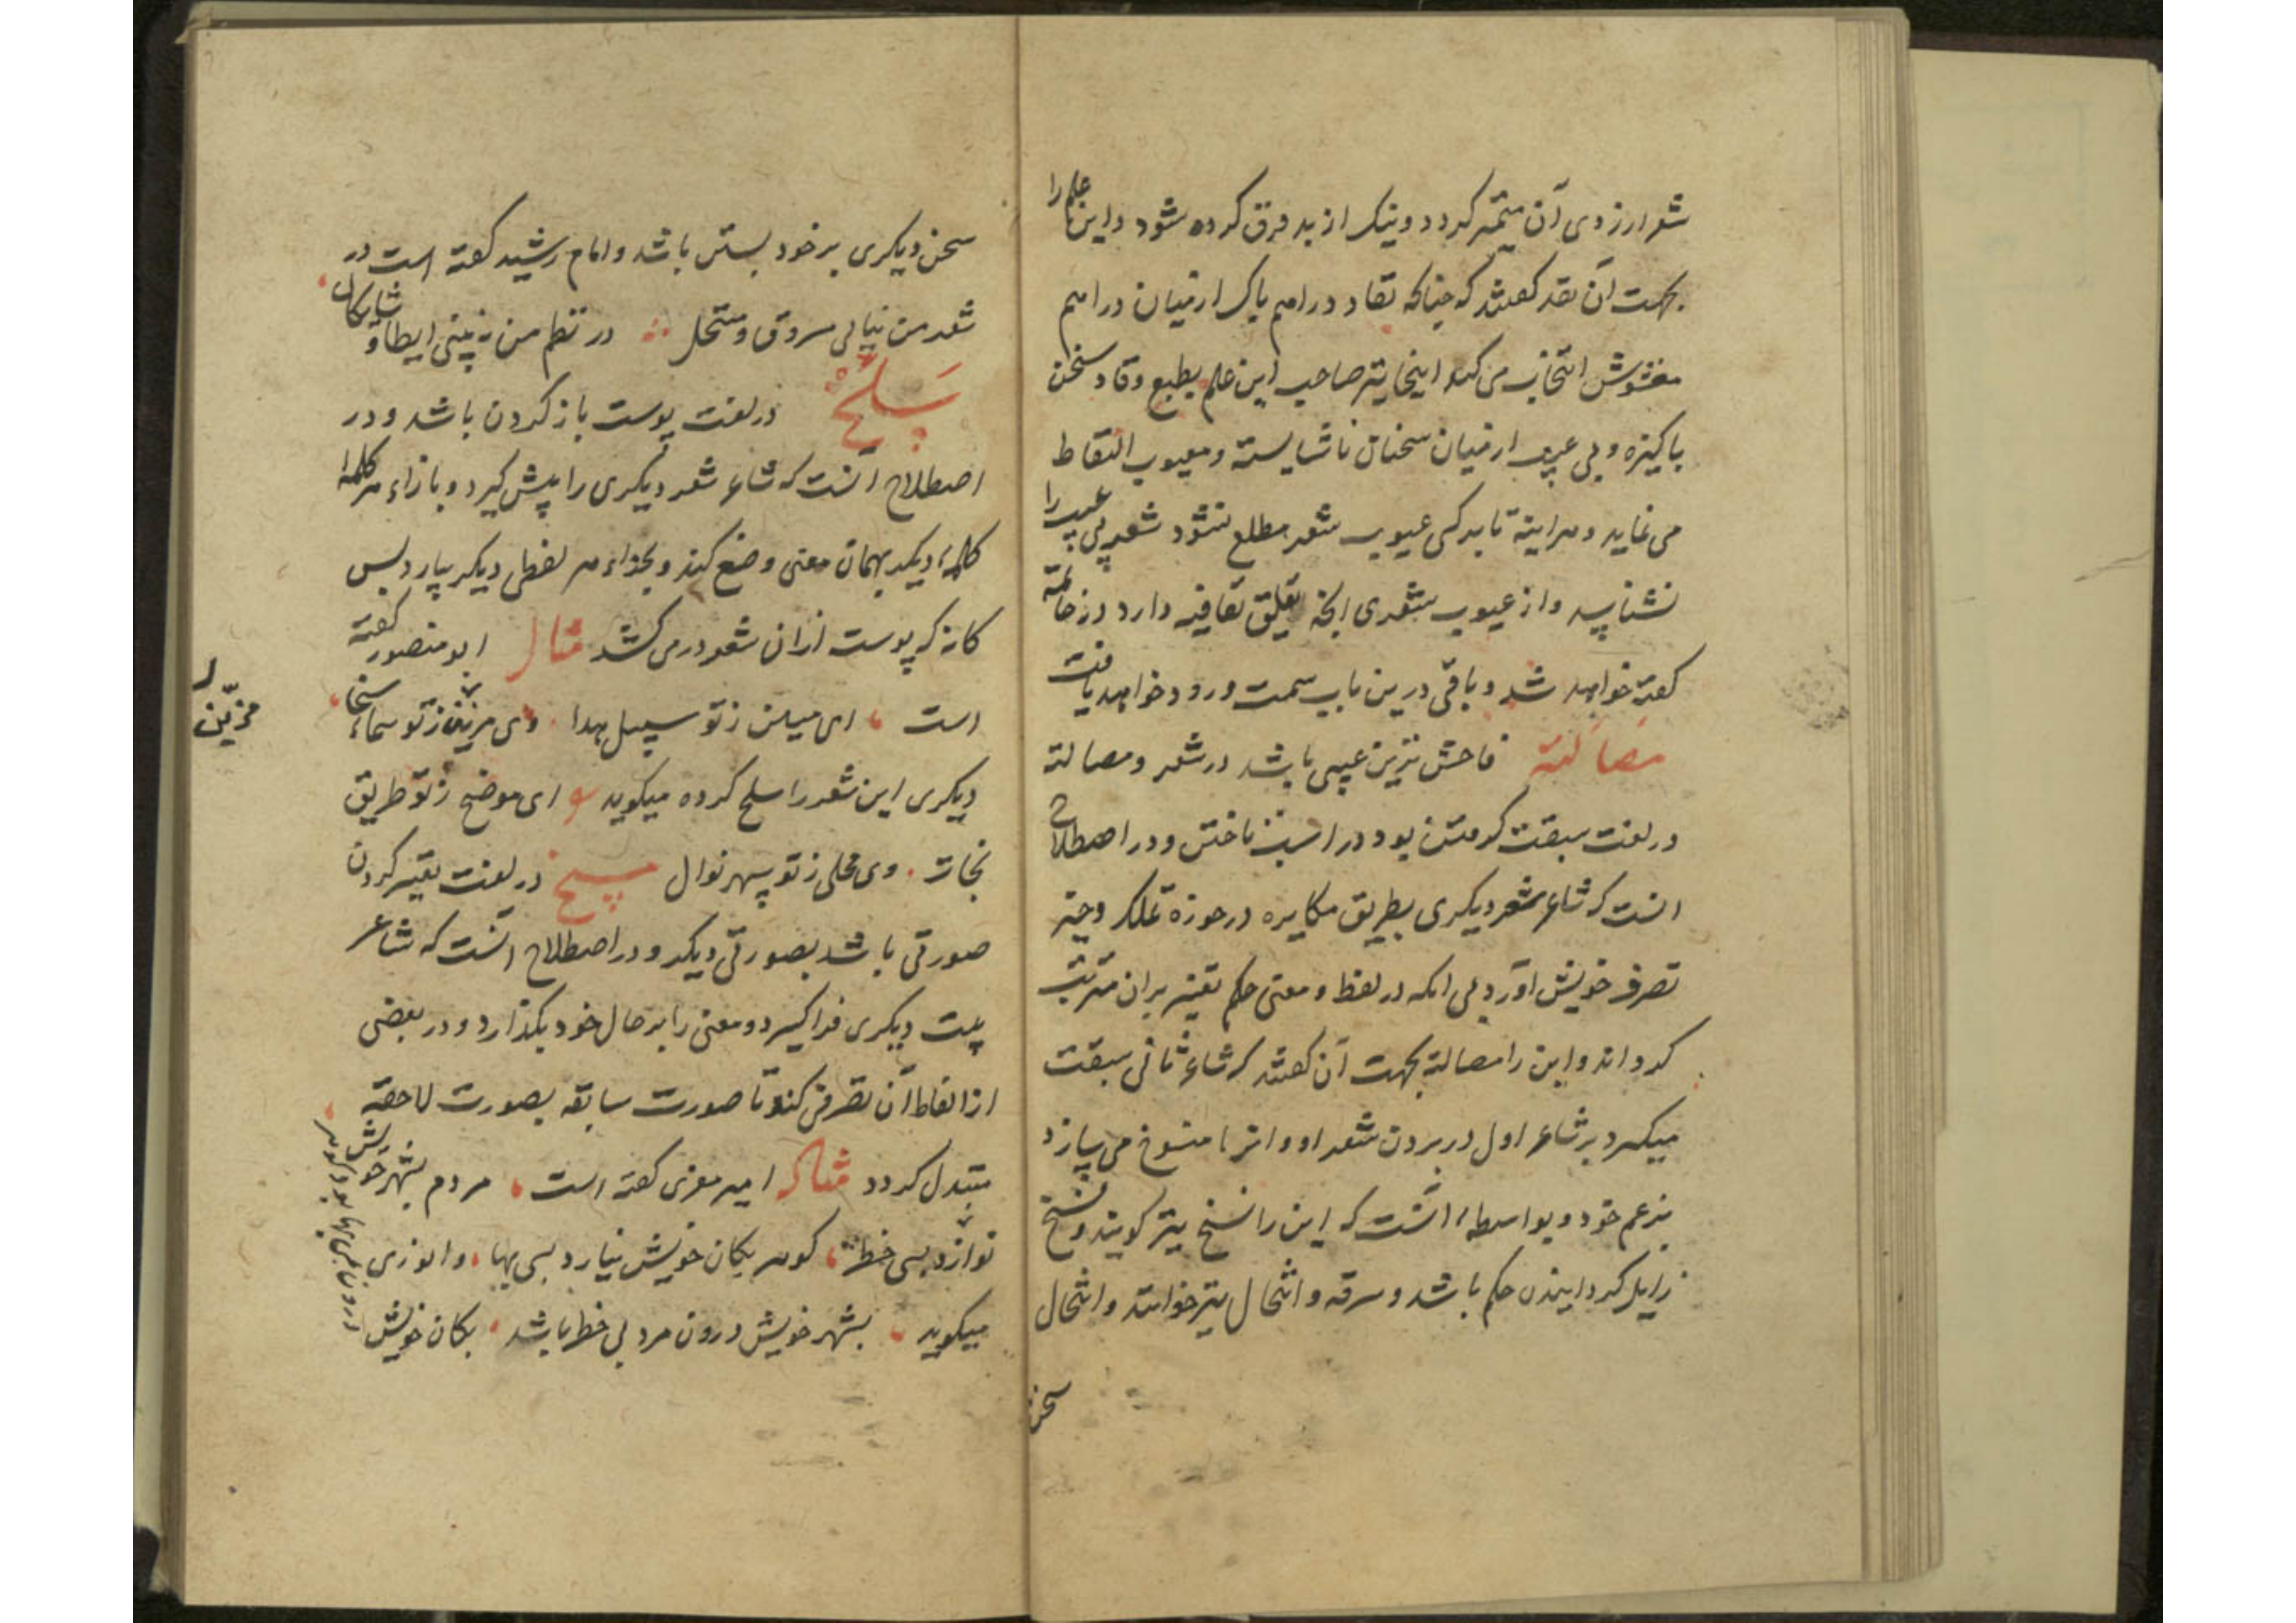 شعر از ردی آن متمیز کردد و نیک از بد فرق کرده شود و این علم را
بجهت آن نقد کفتند که چنانکه نقاد دراهم پاک از میان دراهم
مغشوش انتخاب می کند اینجا نیز صاحب این علم بطبع وقاد سخن
پاکیزه و بی عیب از میان سخنان ناشایسته و معیوب التقاط
می نماید و هراینه تا بدکی عیوب شعر مطلع نشود شعر بی عیب را
نشناسد و از عیوب شعری انچه تعلق بقافیه دارد در خاتمه
کفته خواهد شد و باقی درین باب سمت ورود خواهد یافت
مصالته فاحش ترین عیبی باشد در شعر و مصالته
در لغت سبقت کرفتن بود در اسب تاختن و در اصطلاح
انست که شاعر شعر دیکری بطریق مکابره در حوزه تملک و حیز
تصرف خویش آورد بی انکه در لفظ و معنی حکم تغییر بران مترتب
کرداند و این را مصالته بجهت آن کفتند که شاعر ثانی سبقت
میکیرد بر شاعر اول در بردن شعر او و انرا منسوخ می سازد
بزعم خود و بواسطه انست که این را نسخ نیز کویند و نسخ
زایل کردانیدن حکم باشد و سرقه و انتحال نیز خوانند و انتحال
سخن
سخن دیکری بر خود بستن باشد و امام رشید کفته است در
شعر من نیابی مسروق و منتحل در نظم من نه بینی ایطا و شایکان
سلخ در لغت پوست باز کردن باشد و در
اصطلاح آنست که شاعر شعر دیکری را پیش کیرد و بازاء هر کلمه
کلمه دیکر بهمان معنی وضع کند و بحذاء هر لفظی دیکر بیارد پس
کانه که پوست از ان شعر در می کشد مثال ابو منصور کفته
است ای مبین ز تو سبیل هدا وی مزین ز تو سماء سخا
مزین
دیکری این شعر را سلخ کرده میکوید ای موضح ز تو طریق
نجات وی محلی ز تو سپهر نوال مسخ در لغت تغییر کردن
صورتی باشد بصورتی دیکر و در اصطلاح آنست که شاعر
بیت دیکری فرا کیرد و معنی را بر حال خود بکذارد و در بعضی
از الفاظ آن تصرفی کند تا صورت سابقه بصورت لاحقه
متبدل کردد مثاله امیر معزی کفته است مردم بشهر خویش
ندارد بسی خطر کوهر بکان خویش نیارد بسی بها و انوری
میکوید بشهر خویش درون مرد بی خطر باشد بکان خویش
درون بی بها بود کوهر